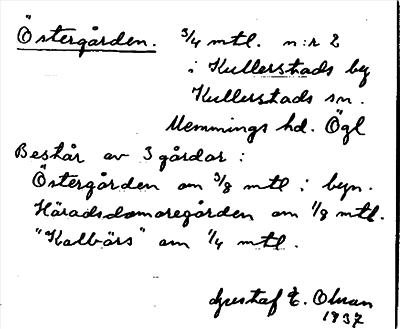 Östergården. 3/4 mtl. n:r 2
i Kullerstads by
Kullerstads sn.
Memmings hd. Ögl
Består av 3 gårdar:
Östergården om 3/8 mtl i byn.
Häradsdomaregården om 1/8 mtl.
"Kalbärs" om 1/4 mtl.
Gustaf E.
1937